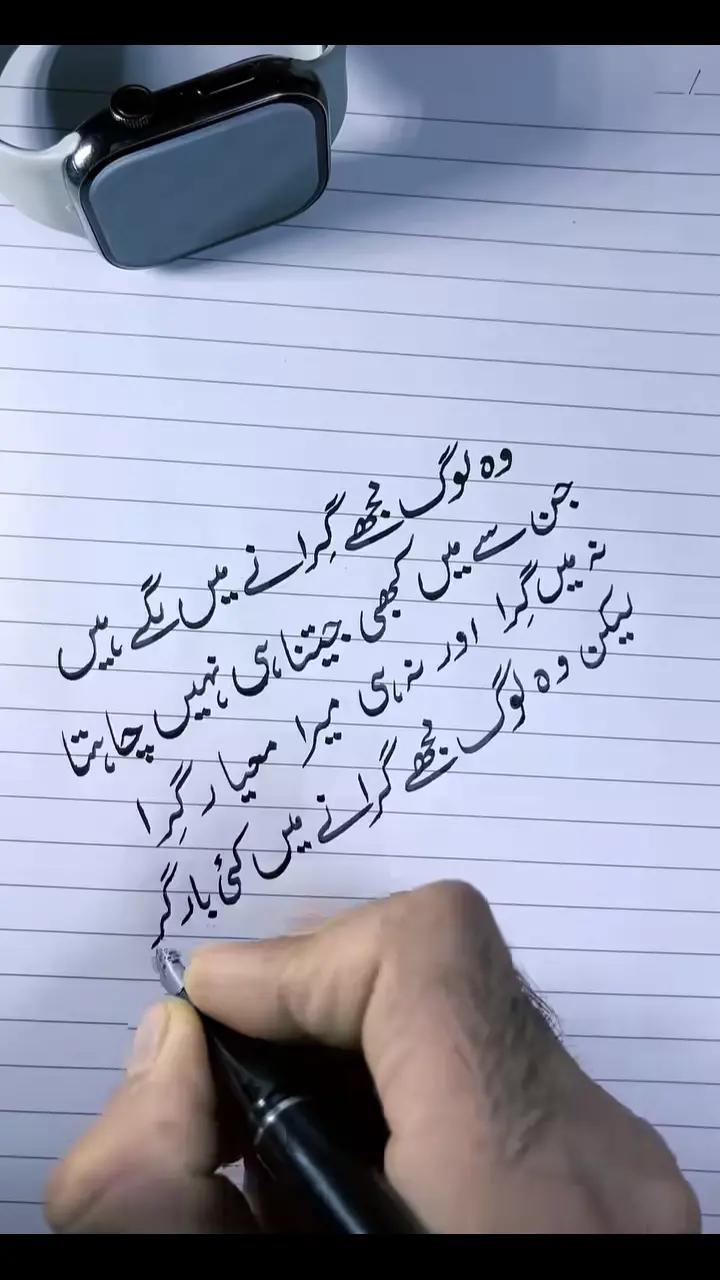 وہ لوگ مجھے گِرانے میں لگے ہیں
جن سے میں کبھی جیتنا ہی نہیں چاہتا
نہ میں گِرا اور نہ ہی میرا معیار گِرا
لیکن وہ لوگ مجھے گرانے میں کئی بار گر